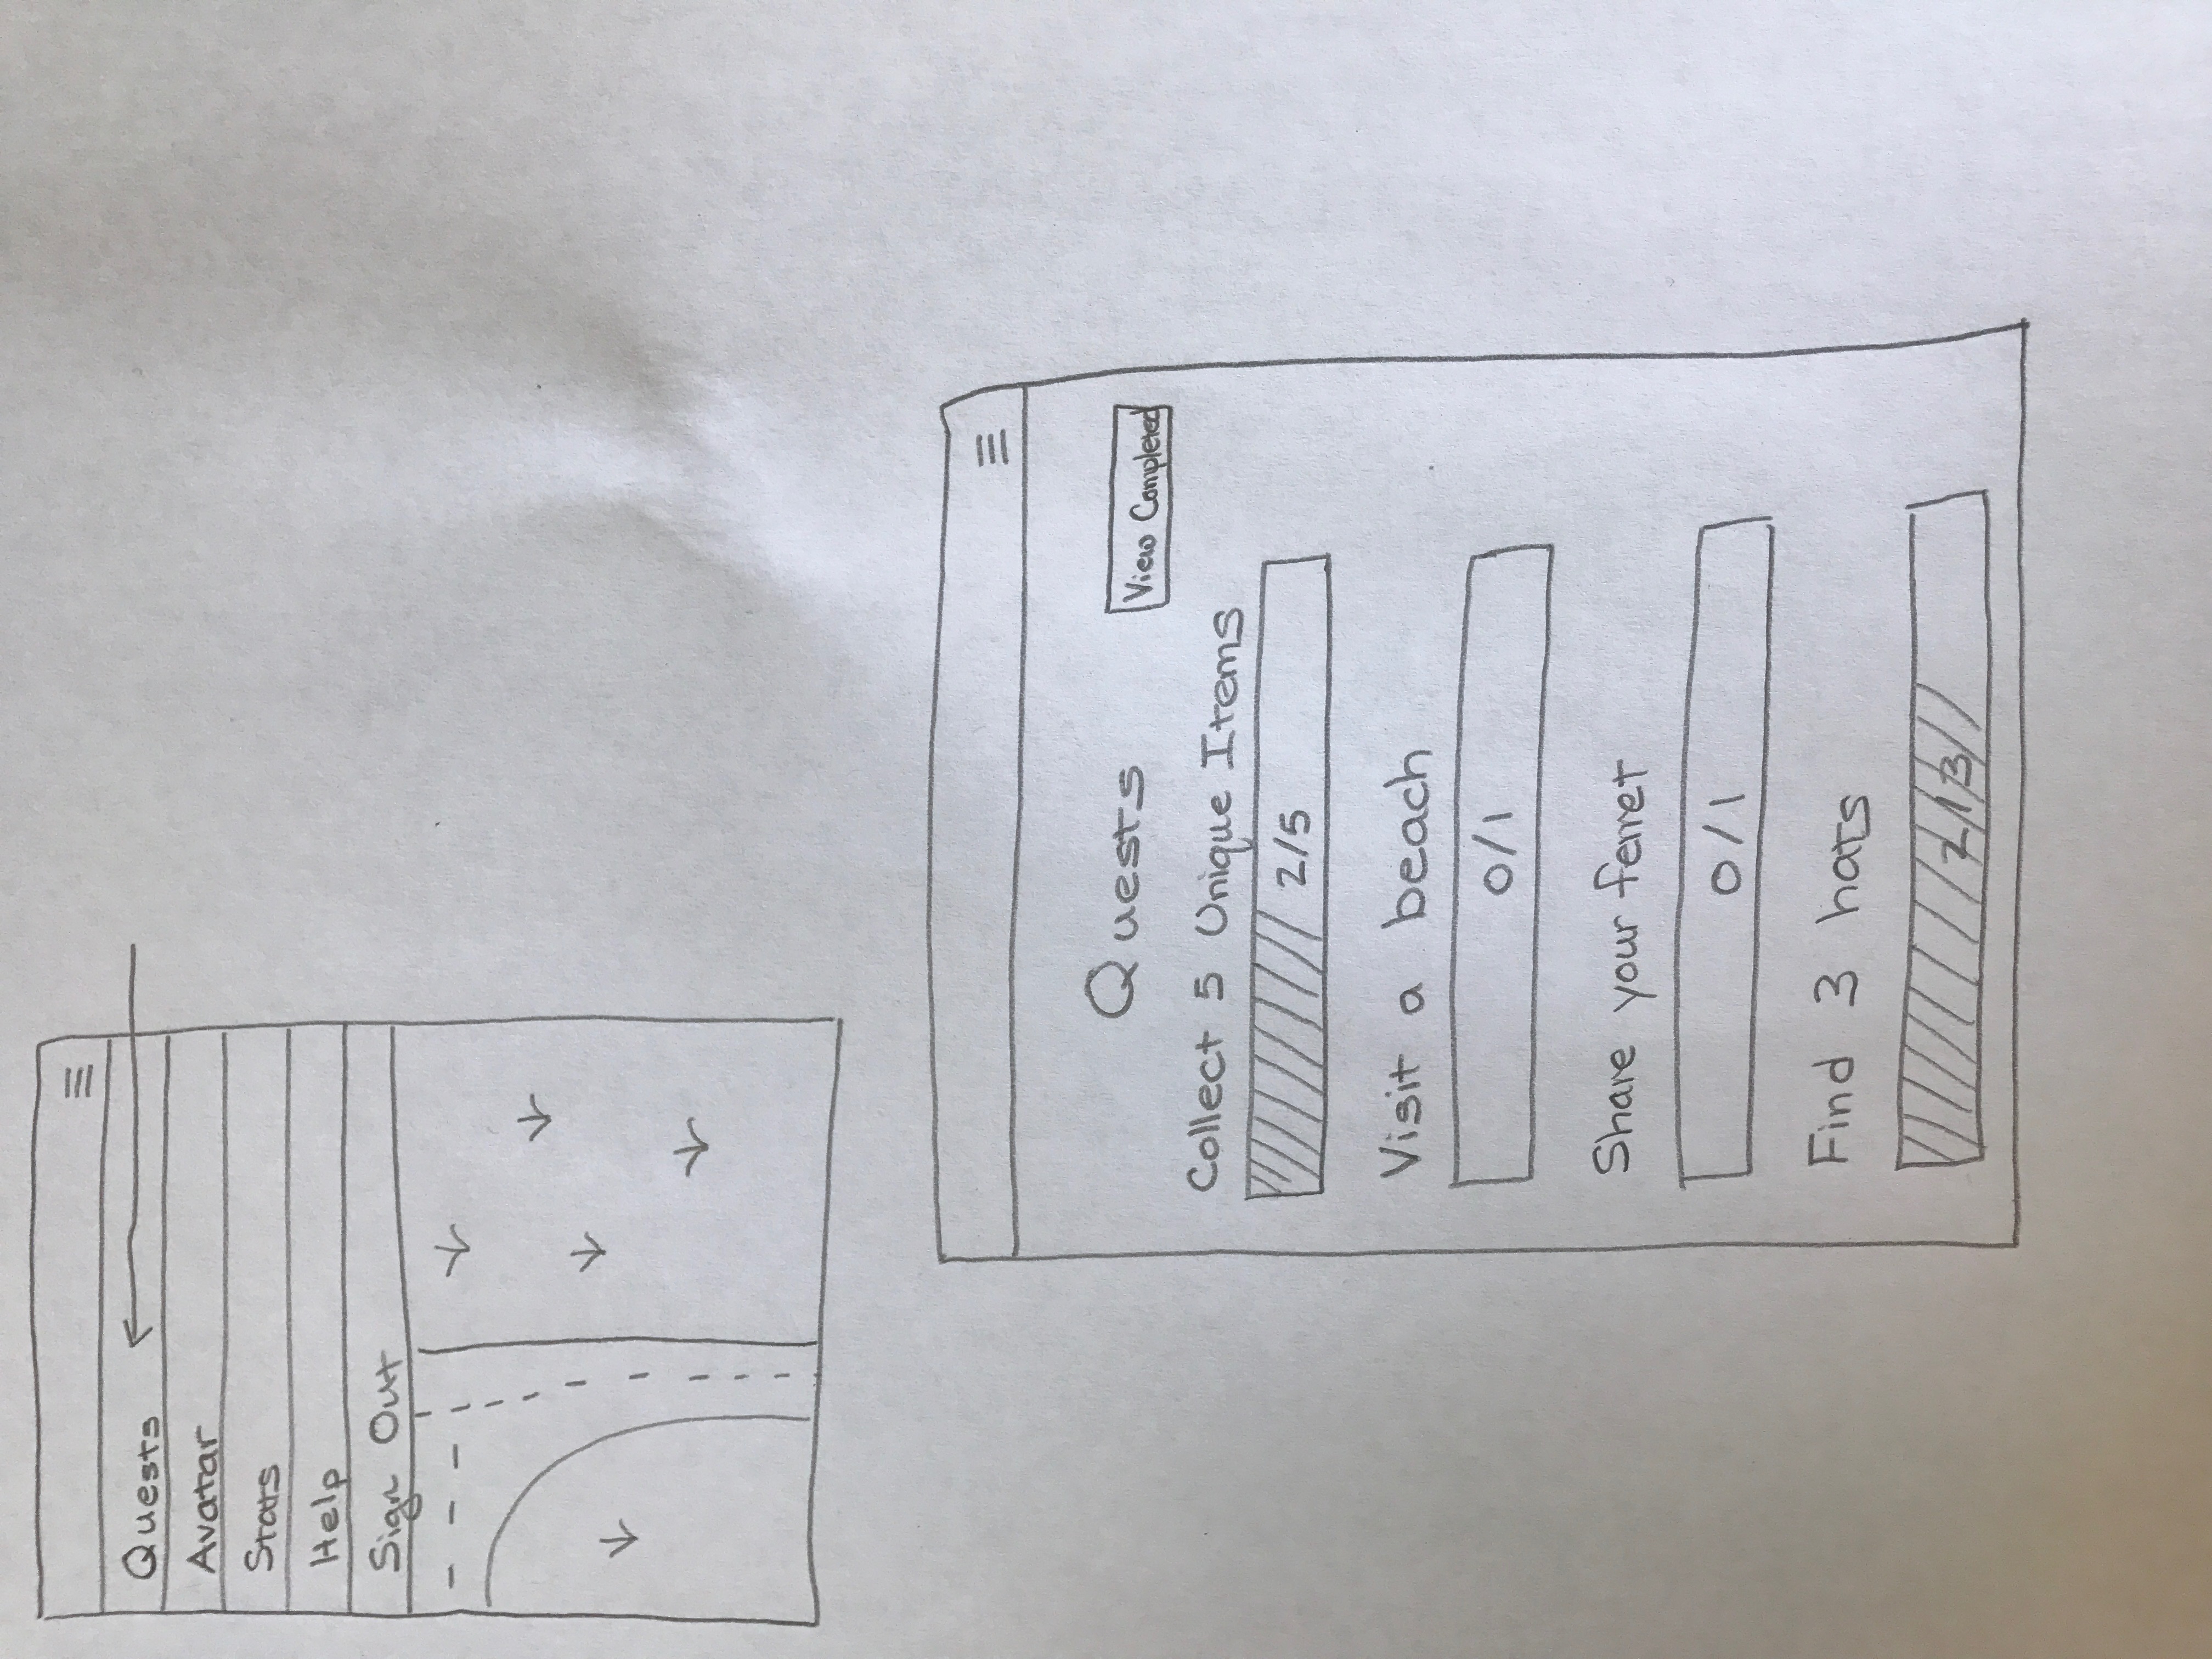 Quests
Avatar
Stats
Help
Sign Out
Quests
View Completed
Collect 5 Unique Items
2/5
Visit a beach
0/1
Share your ferret
0/1
Find 3 hats
2/3